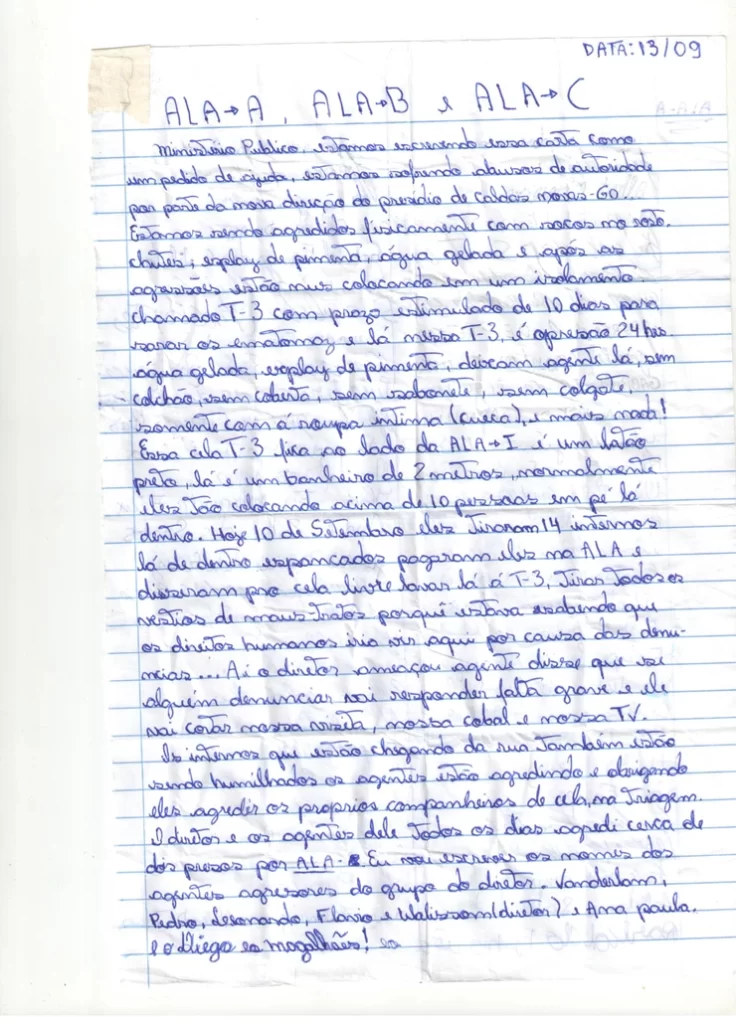 DATA: 13/09
ALA→A, ALA→B e ALA→C
Ministério Publico, estamos escrevendo essa carta como
um pedido de ajuda, estamos sofrendo abusos de autoridade
por parte da nova direção do presidio de caldas novas-GO...
Estamos sendo agredidos fisicamente com socos no rosto,
chutes, esplay de pimenta, água gelada e após as
agressões estão nus colocando em um isolamento
chamado T-3 com prazo estimulado de 10 dias para
sarar os ematomaz e lá nessa T-3, é opresão 24 hrs.
água gelada, esplay de pimenta, deixam agente lá, sem
colchão, sem coberta, sem sabonete, sem colgate,
somente com á roupa intima (cueca), e mais nada!
Essa cela T-3 fica ao lado da ALA→I é um latão
preto, lá é um banheiro de 2 metros, normalmente
eles Tão colocando acima de 10 pessoas em pé lá
dentro. Hoje 10 de Setembro eles Tiraram 14 internos
lá de dentro espancados pegaram eles na ALA e
disseram pro cela livre lavar lá á T-3, Tirar Todos os
vestios de maus-Tratos porquê estava sabendo que
os direitos humanos iria vir aqui por causa das denu-
ncias... Ai o diretor ameaçou agente disse que se
alguém denunciar vai responder falta grave e ele
vai cortar nossa visita, nossa cobal e nossa TV.
Os internos que estão chegando da rua Também estão
sendo humilhados os agentes estão agredindo e obrigando
eles agredir os proprios companheiros de cela, na Triagem.
O diretor e os agentes dele Todos os dias agredi cerca de
dois presos por ALA. Eu vou escrever os nomes dos
agentes agresores do grupo do diretor. Vanderlam,
Pedro, Fernando, Flavio e Walissom (diretor) e Ana paula.
e o Diego e o magalhães!